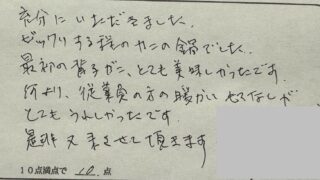 充分にいただきました。
ビックリする程のカニの鍋でした。
最初の背子ガニ、とても美味しかったです。
何より、従業員の方の暖かいもてなしが
とてもうれしかったです。
是非又来させて頂きます
10点満点で 10 点